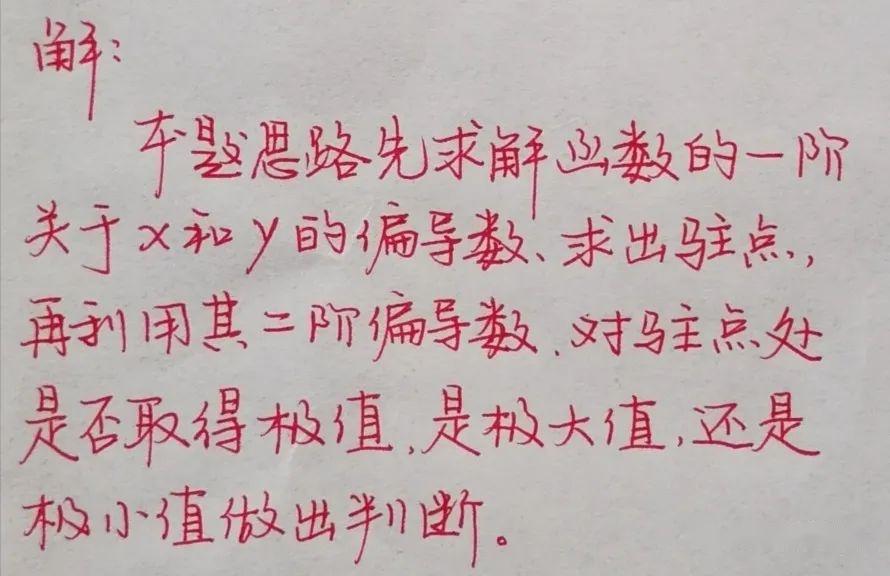 解:
本题思路先求解函数的一阶
关于x和y的偏导数、求出驻点,
再利用其二阶偏导数、对驻点处
是否取得极值,是极大值,还是
极小值做出判断。